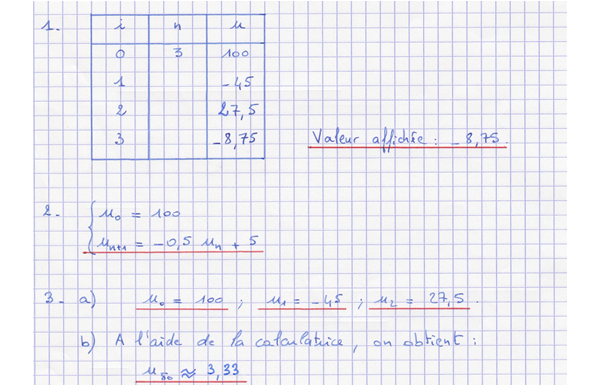 1. i n u
0 3 100
1 -45
2 27,5
3 -8,75
Valeur affichée : -8,75.
2. { u₀ = 100
uₙ₊₁ = -0,5 uₙ + 5
3- a) u₀ = 100 ; u₁ = -45 ; u₂ = 27,5.
b) A l'aide de la calculatrice, on obtient :
≈ 3,33